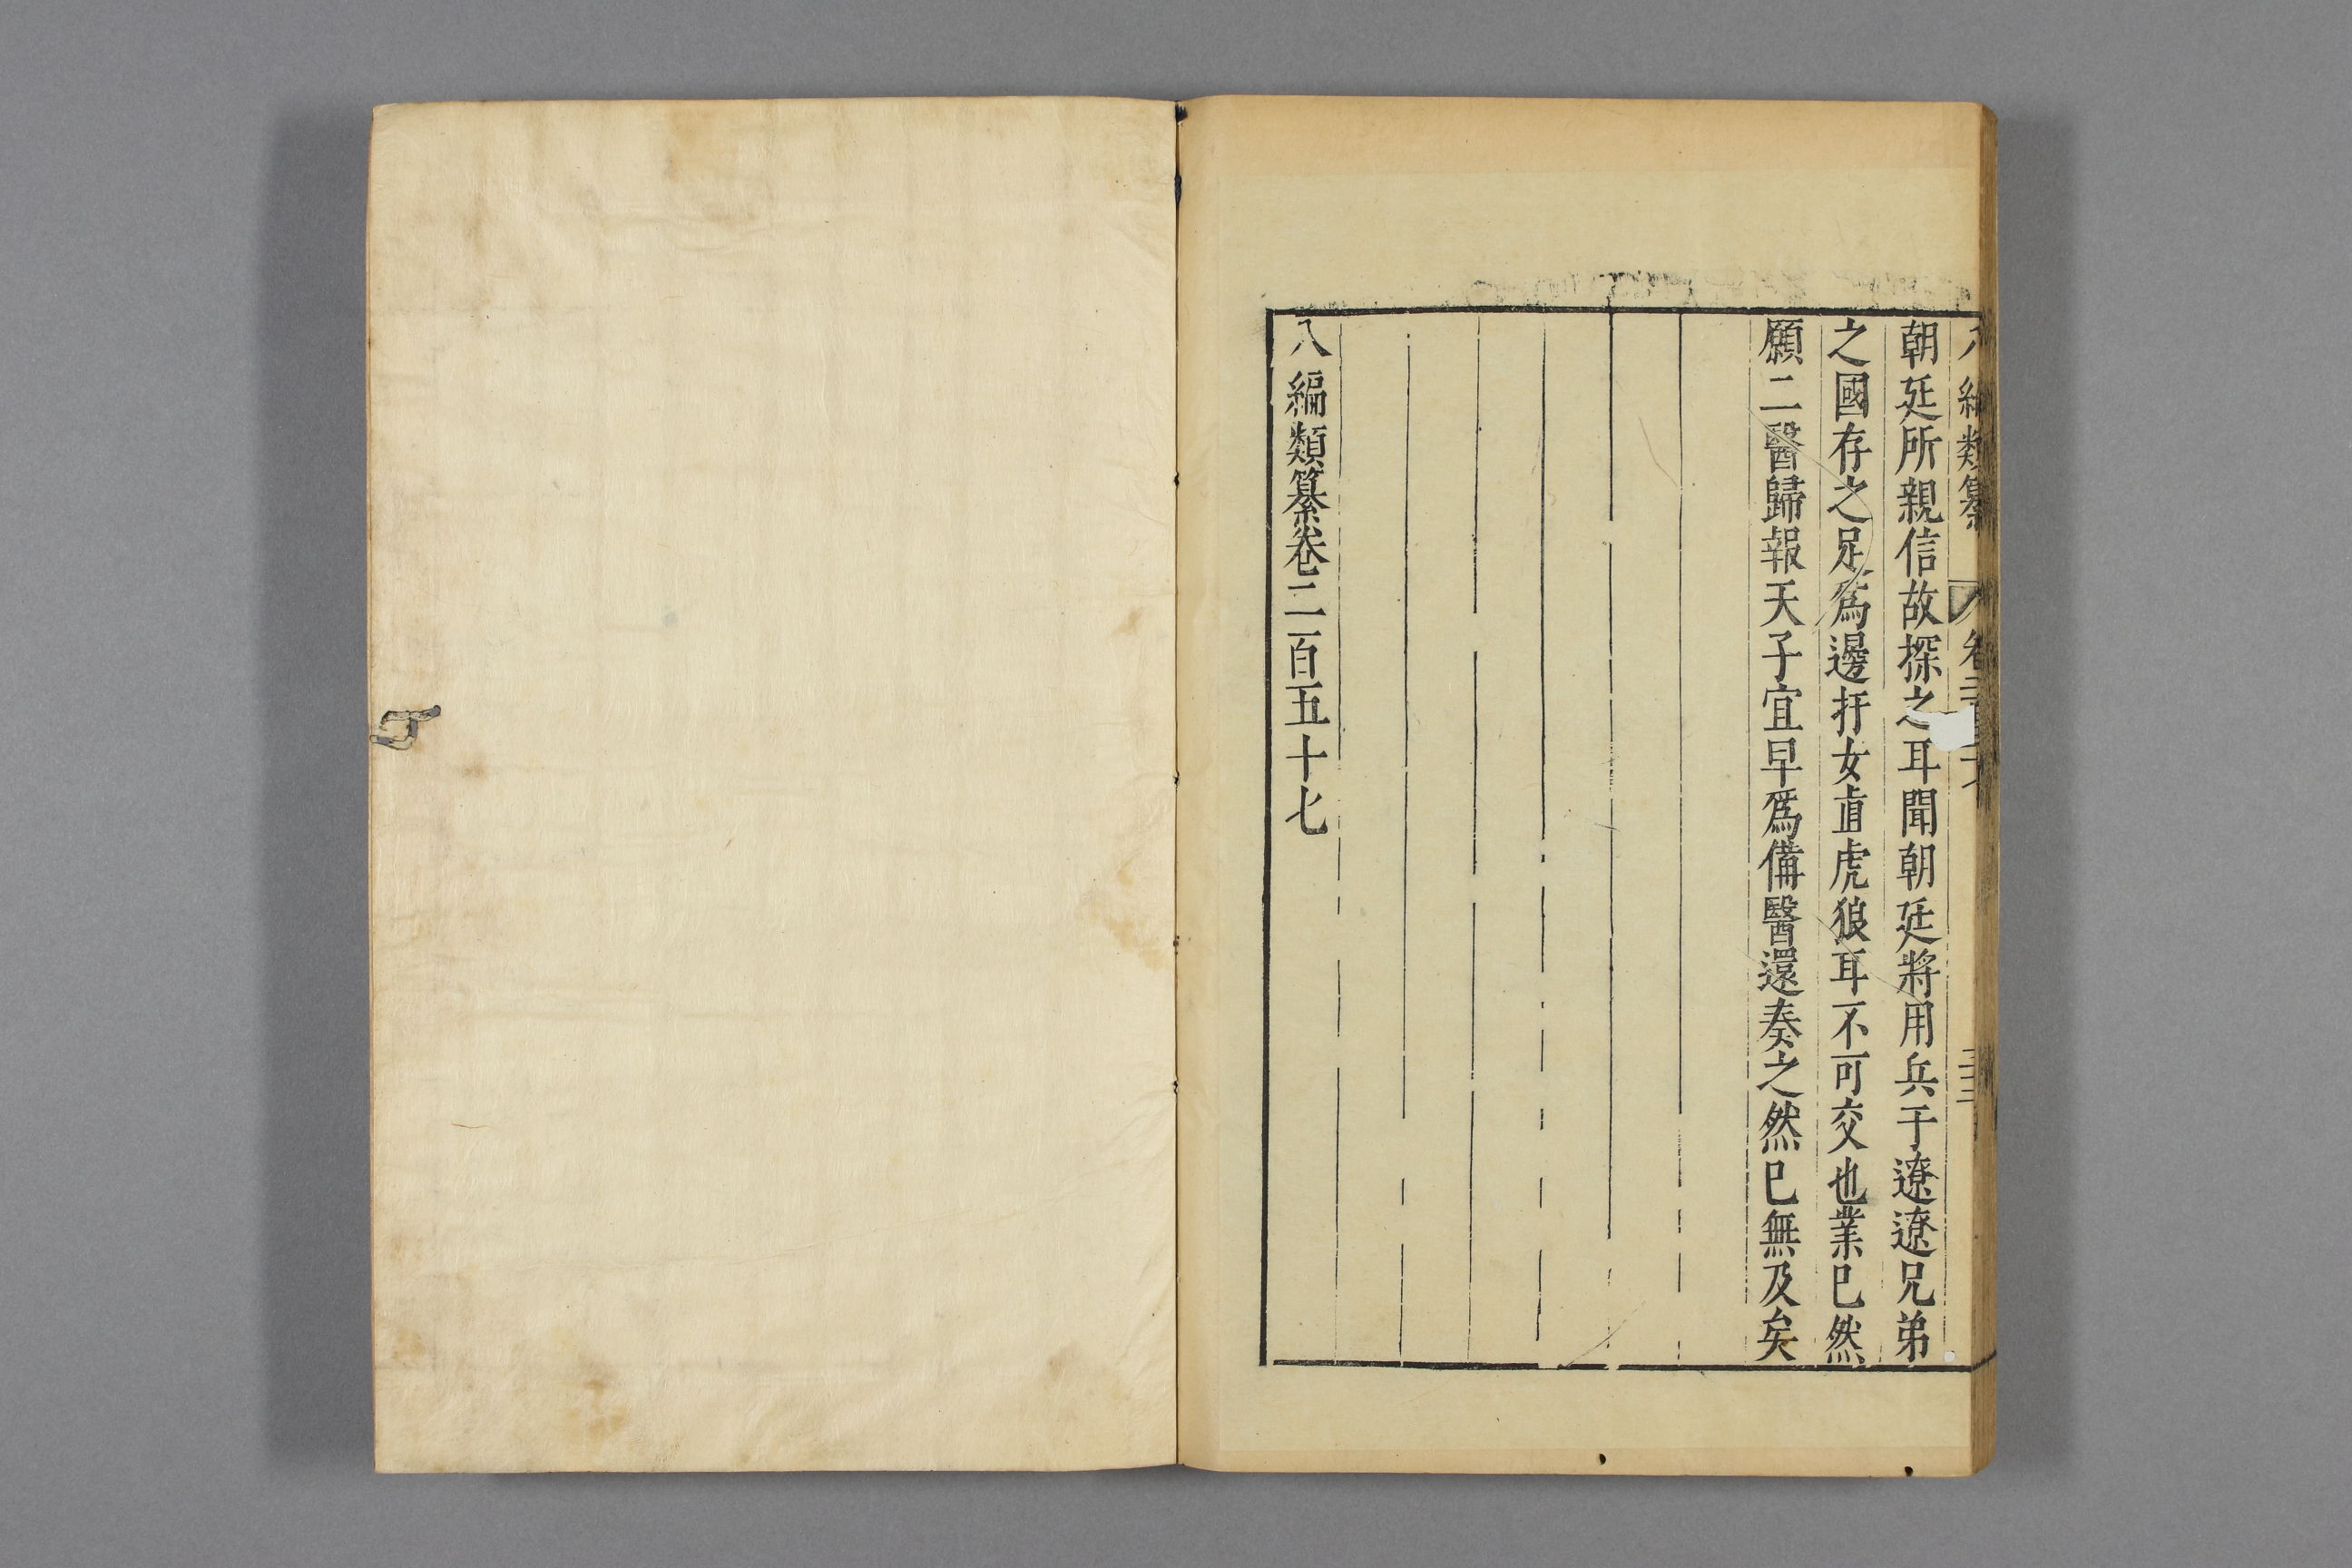 八編類纂
朝廷所親信故探之耳聞朝廷將用兵于遼遼兄弟
之國存之足爲邊扞女直虎狼耳不可交也業巳然
願二醫歸報天子宜早爲備醫還奏之然巳無及矣
八編類纂卷二百五十七